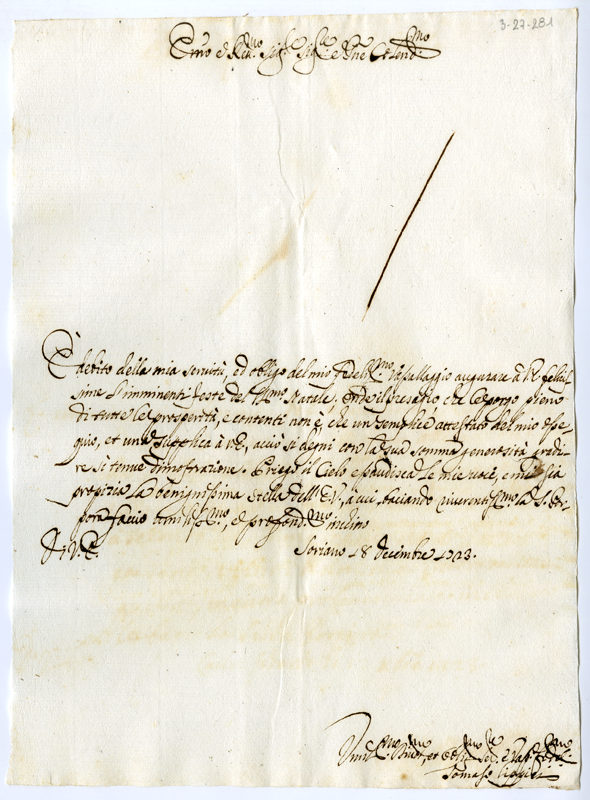 3-27-281
Em̃o e Rev.mo Sig.r Sig.r e Pne Col.mo
È debito della mia servitù, ed obligo del mio fedell.mo Vassallaggio augurare à V.E. felicis-
sime l'imminenti Feste del SS.mo Natale. Onde il presagio che le porgo pieno
di tutte le prosperità, e contenti non è, che un semplice attestato del mio osse-
quio, et una supplica à V.E., acciò si degni con la sua somma generosità gradi-
re si tenue dimostrazione. Priego il Cielo esaudisca le mie voci, e mi sia
propizia la benignissima stella dell'E.V., à cui baciando riverentiss.mo la S. Por-
pora faccio umiliss.mo, e profond.mo inchino
Di V.E.
Soriano 18 Decembre 1723.
Umil.mo Dev.mo, et Obl.mo Ser.e e Vas.lo Fedel.mo
Tomaso